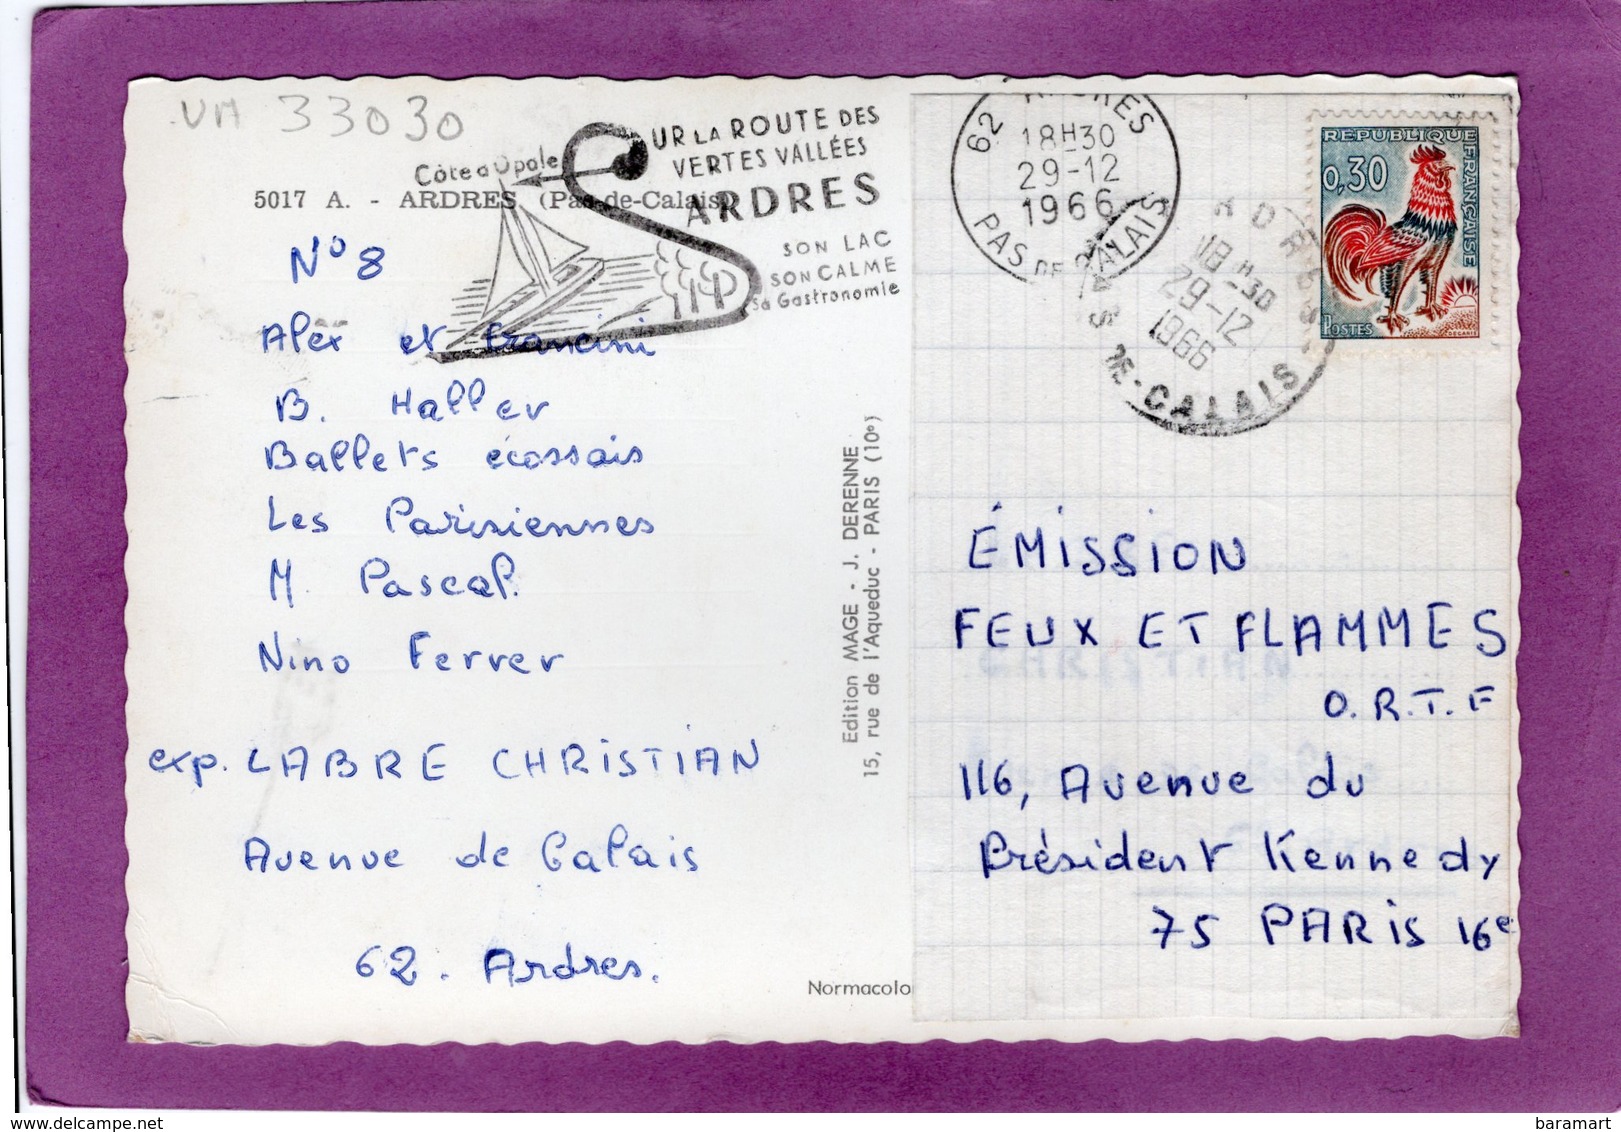 VM 33030
Côte d'Opale
SUR LA ROUTE DES
VERTES VALLÉES
ARDRES
SON LAC
SON CALME
Sa Gastronomie
5017 A. - ARDRES. (Pas-de-Calais)
N° 8
Alex et Francini
B. Haller
Ballets écossais
Les Parisiennes
M. Pascal.
Nino Ferrer
exp. LABRE CHRISTIAN
Avenue de Calais
62. Ardres.
Edition MAGE - J. DERENNE
15, rue de l'Aqueduc - PARIS (10e)
Normacolo
62 ARDRES
18H30
29-12
1966
PAS DE CALAIS
ARDRES
18H-30
29-12
1966
PAS DE-CALAIS
REPUBLIQUE FRANÇAISE
0,30
POSTES
DECARIS
ÉMISSION
FEUX ET FLAMMES
O.R.T.F
116, Avenue du
Président Kennedy
75 PARIS 16e
baramart